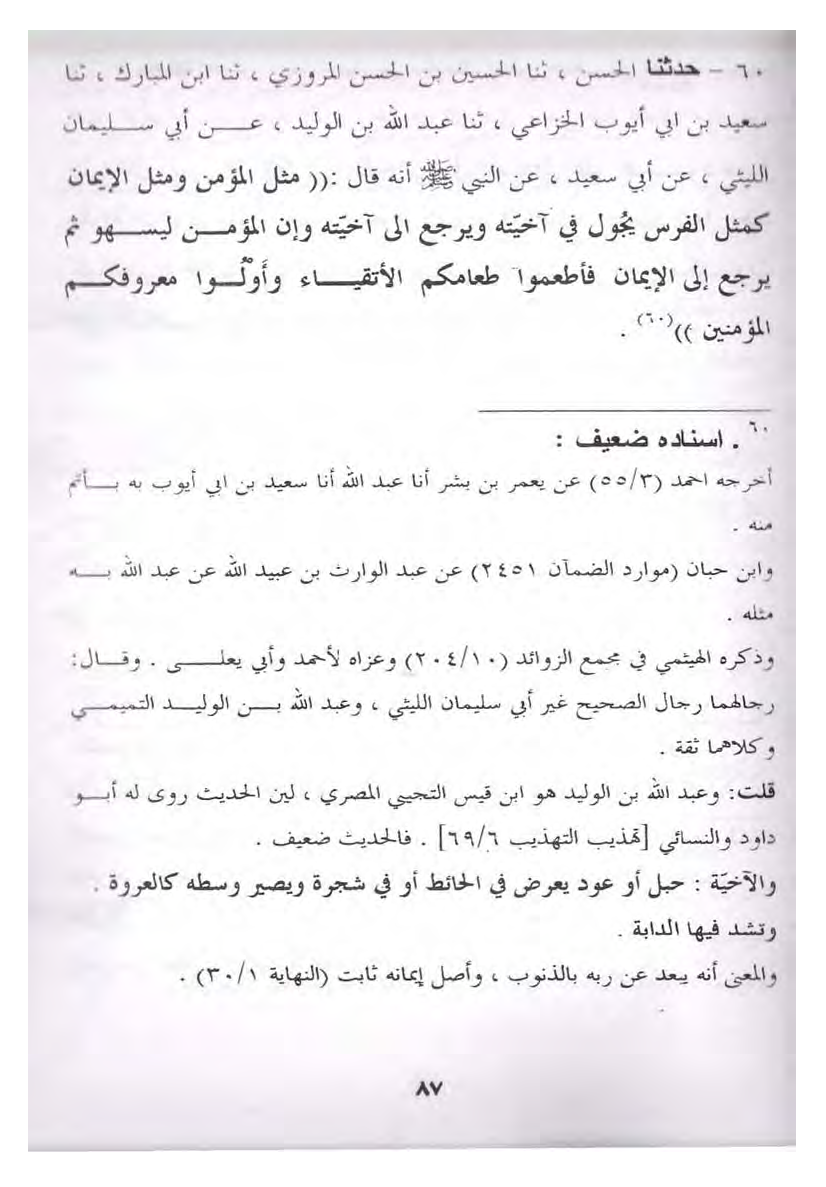 ٦٠ – حدثنا الحسن ، ثنا الحسين بن الحسن المروزي ، ثنا ابن المبارك ، ثنا
سعيد بن ابي أيوب الخزاعي ، ثنا عبد الله بن الوليد ، عن أبي سليمان
الليثي ، عن أبي سعيد ، عن النبي ﷺ أنه قال :(( مثل المؤمن ومثل الإيمان
كمثل الفرس يجُول في آخيّته ويرجع الى آخيّته وإن المؤمن ليسهو ثم
يرجع إلى الإيمان فأطعموا طعامكم الأتقياء وأَوْلُوا معروفكم
المؤمنين ))(٦٠) .
٦٠ . اسناده ضعيف :
أخرجه احمد (٥٥/٣) عن يعمر بن بشر أنا عبد الله أنا سعيد بن ابي أيوب به بأتم
منه .
وابن حبان (موارد الضمآن ٢٤٥١) عن عبد الوارث بن عبيد الله عن عبد الله به
مثله .
وذكره الهيثمي في مجمع الزوائد (٢٠٤/١٠) وعزاه لأحمد وأبي يعلى . وقال:
رجالهما رجال الصحيح غير أبي سليمان الليثي ، وعبد الله بن الوليد التميمي
وكلاهما ثقة .
قلت: وعبد الله بن الوليد هو ابن قيس التجيبي المصري ، لين الحديث روى له أبو
داود والنسائي [تهذيب التهذيب ٦٩/٦] . فالحديث ضعيف .
والآخيّة : حبل أو عود يعرض في الحائط أو في شجرة ويصير وسطه كالعروة .
وتشد فيها الدابة .
والمعنى أنه يبعد عن ربه بالذنوب ، وأصل إيمانه ثابت (النهاية ٣٠/١) .
٨٧